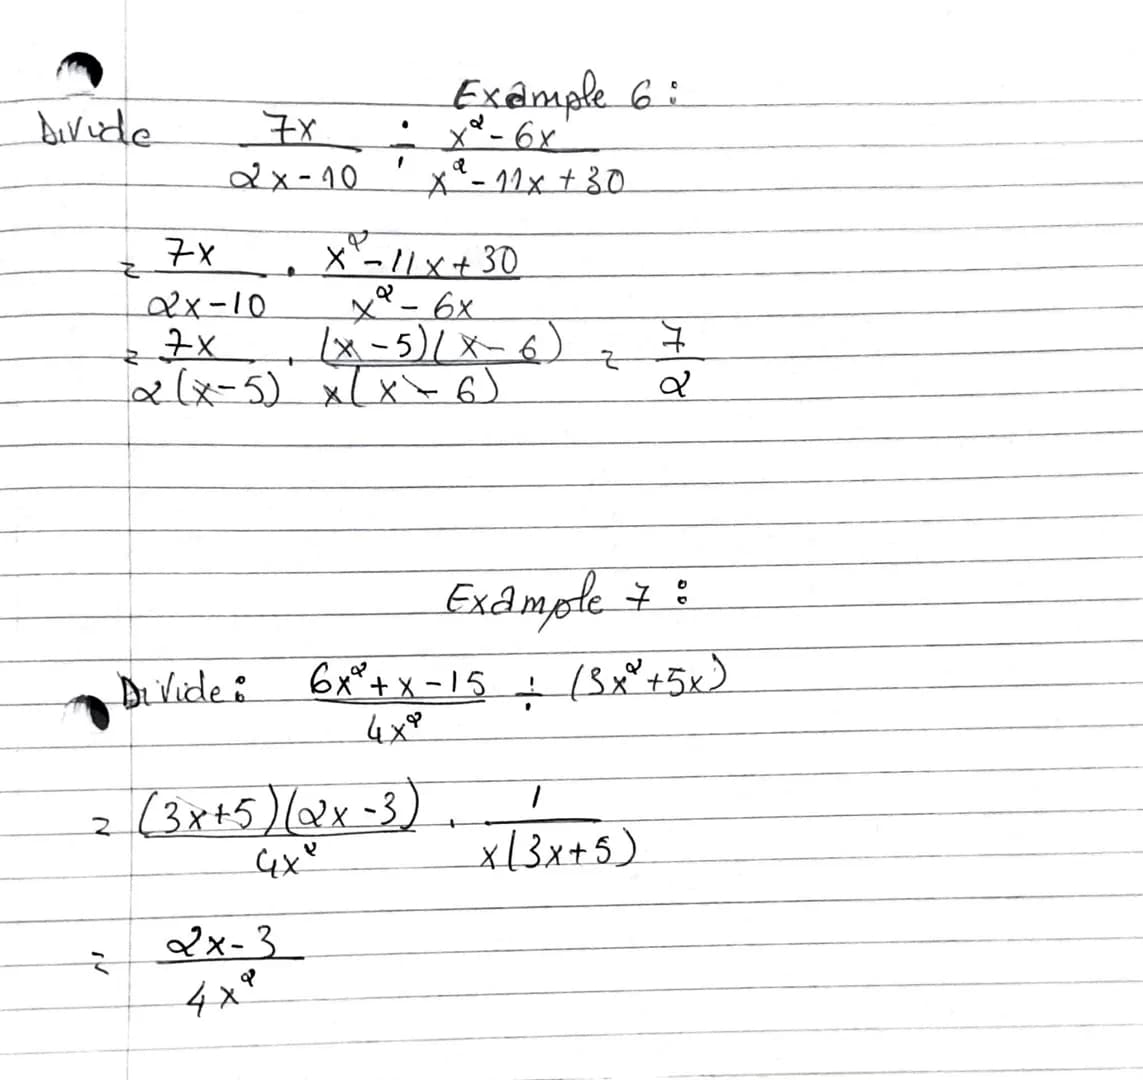 Example 6:
Divide 7x/(2x-10) ÷ (x²-6x)/(x²-11x+30)
= 7x/(2x-10) · (x²-11x+30)/(x²-6x)
= 7x/(2(x-5)) · ((x-5)(x-6))/(x(x-6)) = 7/2
Example 7:
Divide: (6x²+x-15)/(4x²) ÷ (3x²+5x)
= ((3x+5)(2x-3))/(4x²) · 1/(x(3x+5))
= (2x-3)/(4x²)